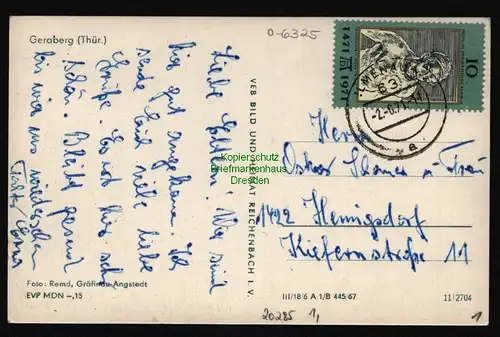 Geraberg (Thür.)
0-6325
Liebe Eltern! Wir sind
hier gut angekommen. Ich
sende Euch viele liebe
Grüße. Es ist hier sehr
schön. Bleibt gesund
bis wir uns wiedersehen
Foto: Remd, Gräfinau-Angstedt
EVP MDN -,15
VEB BILD UND HEIMAT REICHENBACH I. V.
Kopierschutz
Briefmarkenhaus
Dresden
1471
1971
10
ILMENAU
63
-2.-6.71
a
Herrn
Oskar
und Frau
1422 Hennigsdorf
Kiefernstraße 11
III/18/6 A 1/B 445/67
11/2704
20285
1,
1